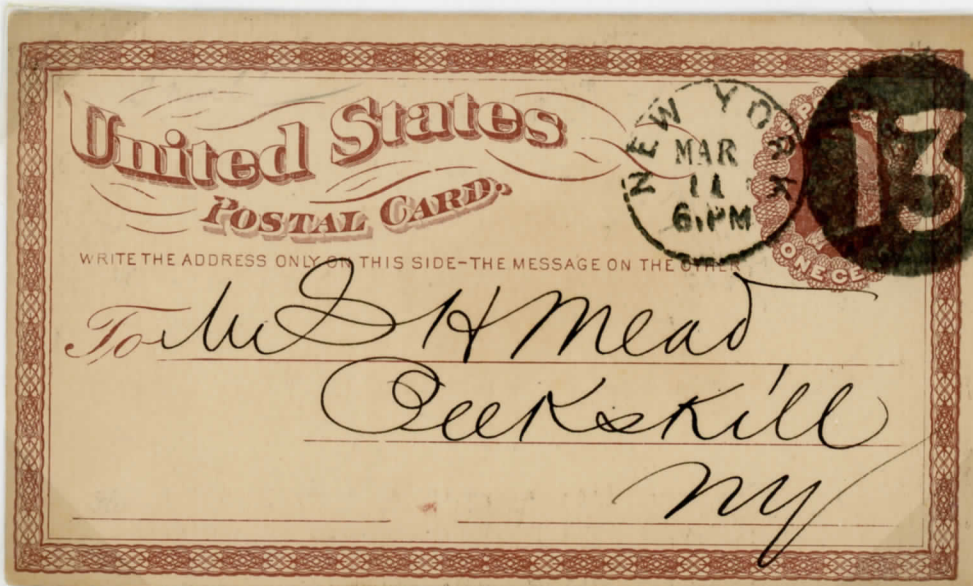 United States
POSTAL CARD.
NEW YORK
MAR
11
6.PM
13
ONE CE
WRITE THE ADDRESS ONLY ON THIS SIDE-THE MESSAGE ON THE OTHER
To Mr S H Mead
Peekskill
NY